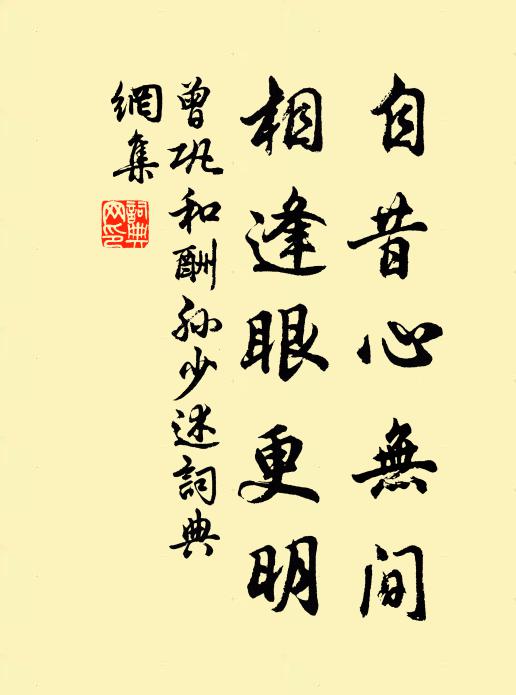 自昔心無間
相逢眼更明
曾巩和酬孙少述詞典
網集
詞典
网印